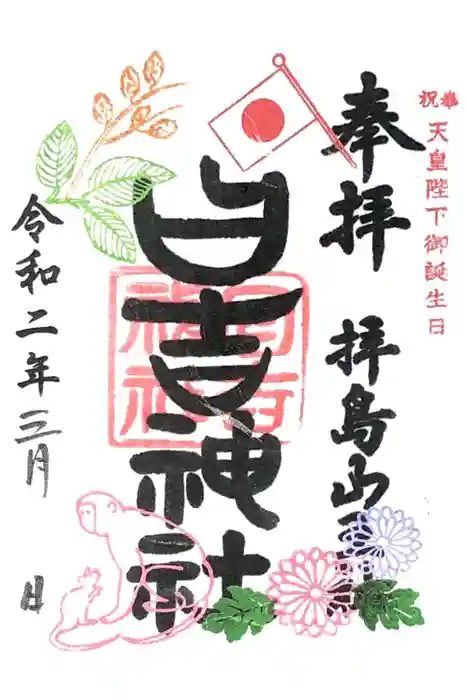 奉祝
天皇陛下御誕生日
奉拝 拝島山王
日吉神社
日吉神社
令和二年三月 日